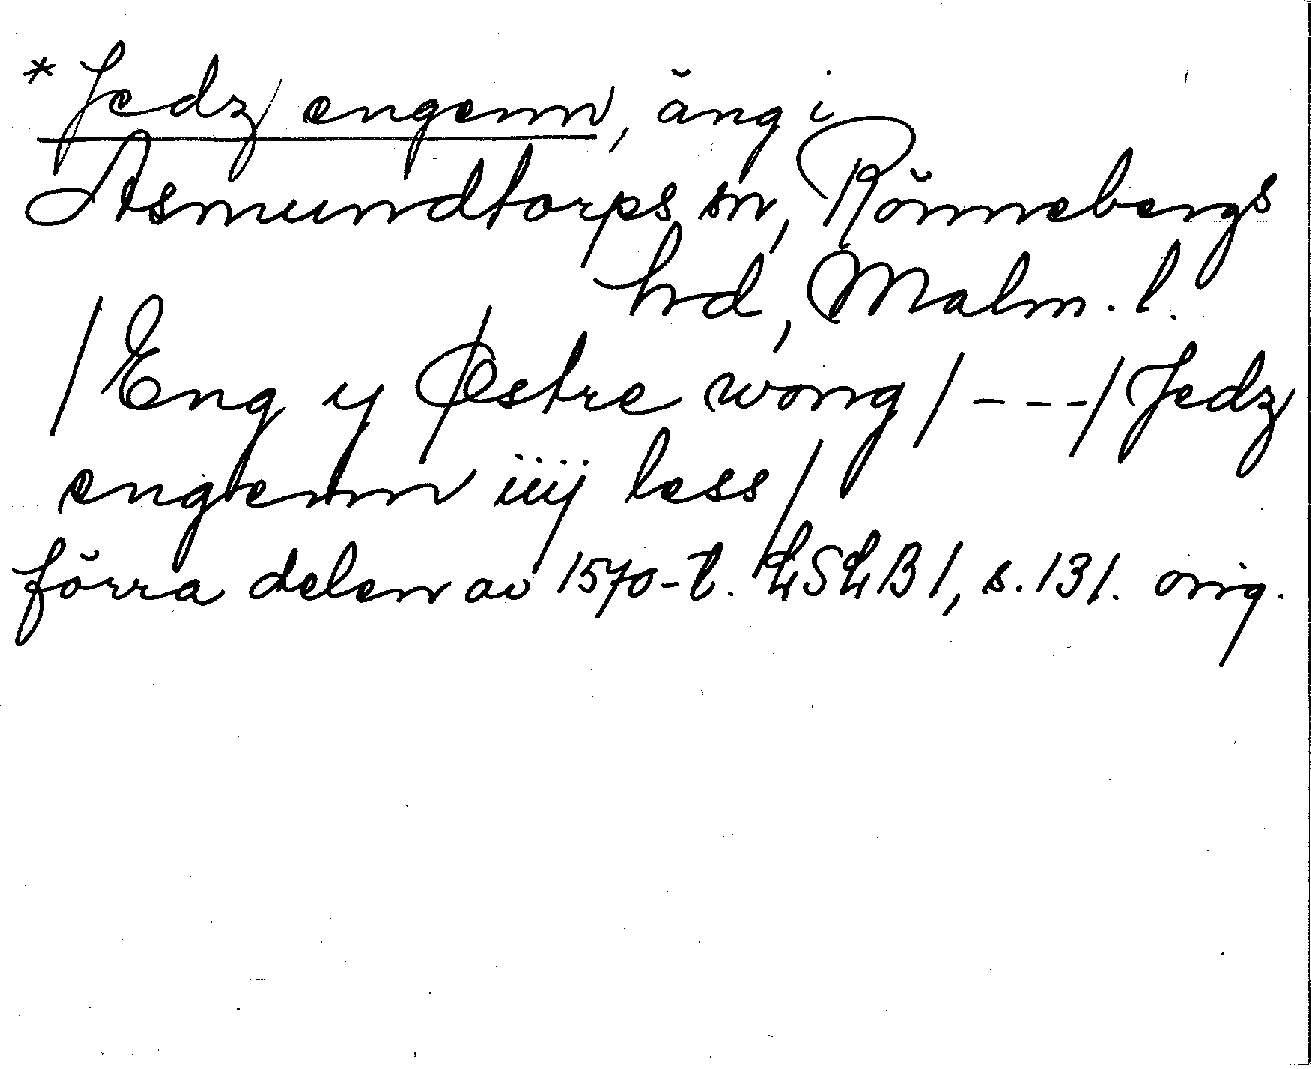 * Jedz engenn, äng i
Asmundtorps sn, Rönnebergs
hd, Malm. l.
/Eng y Østre wong/ - - -/ Jedz
engenn iiij less/
förra delen av 1570-t. LSLB 1, s. 131. orig.